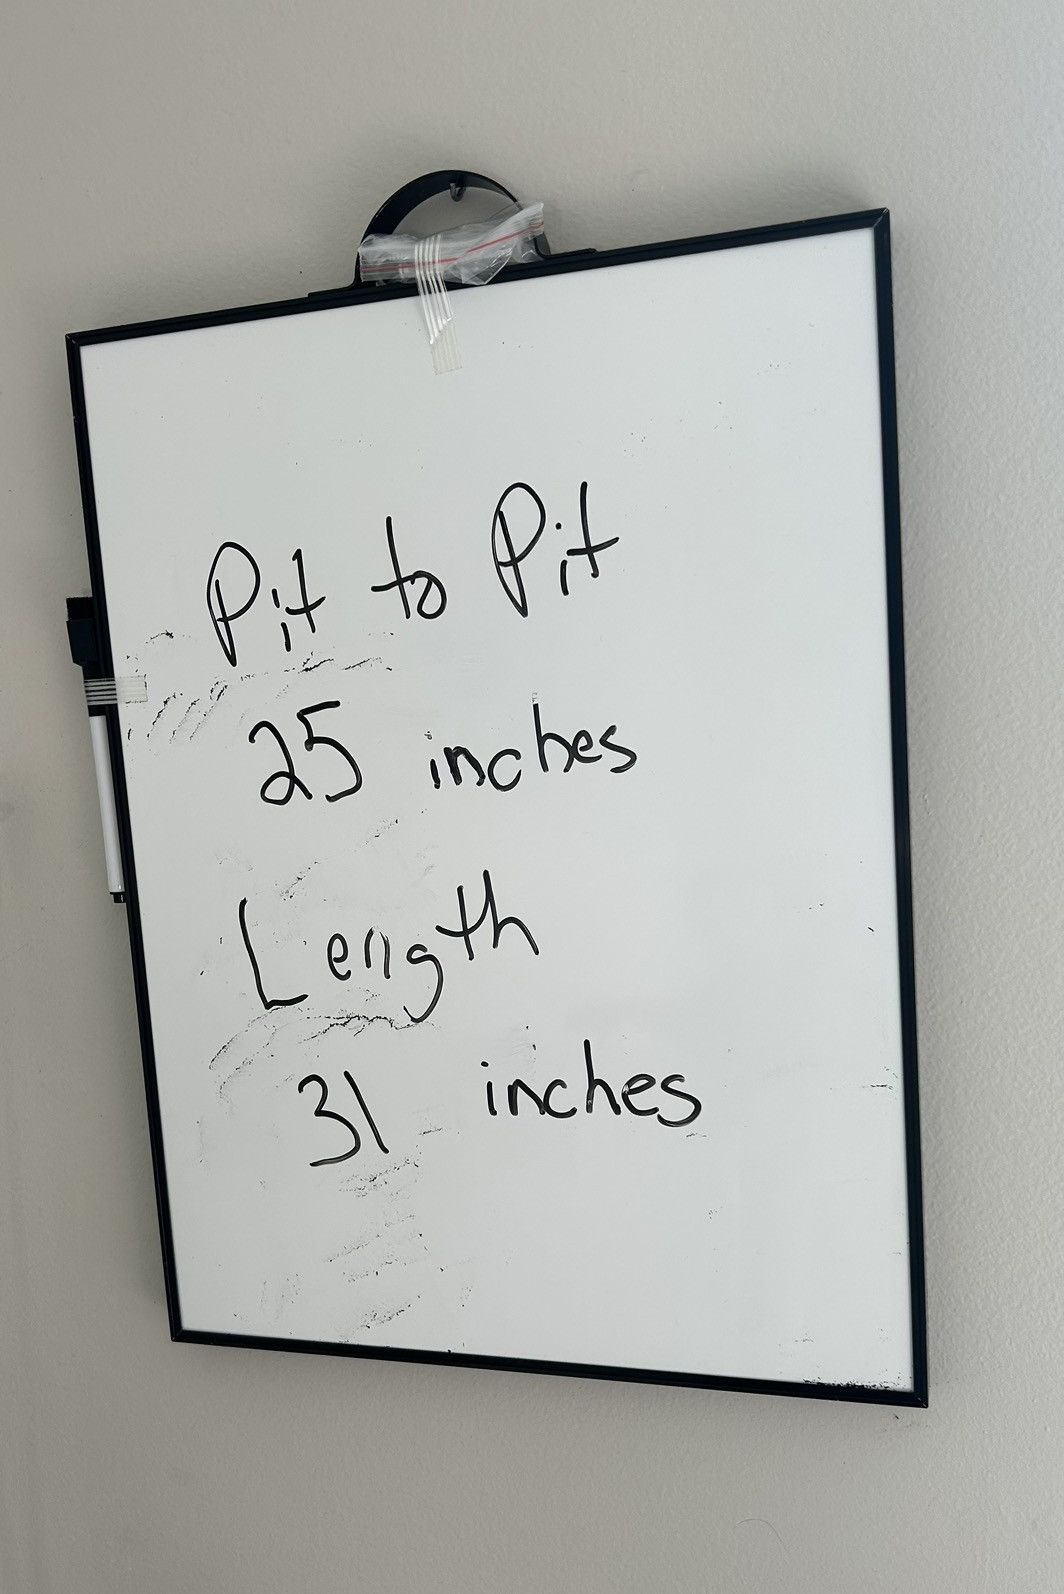 Pit to Pit
25 inches
Length
31 inches